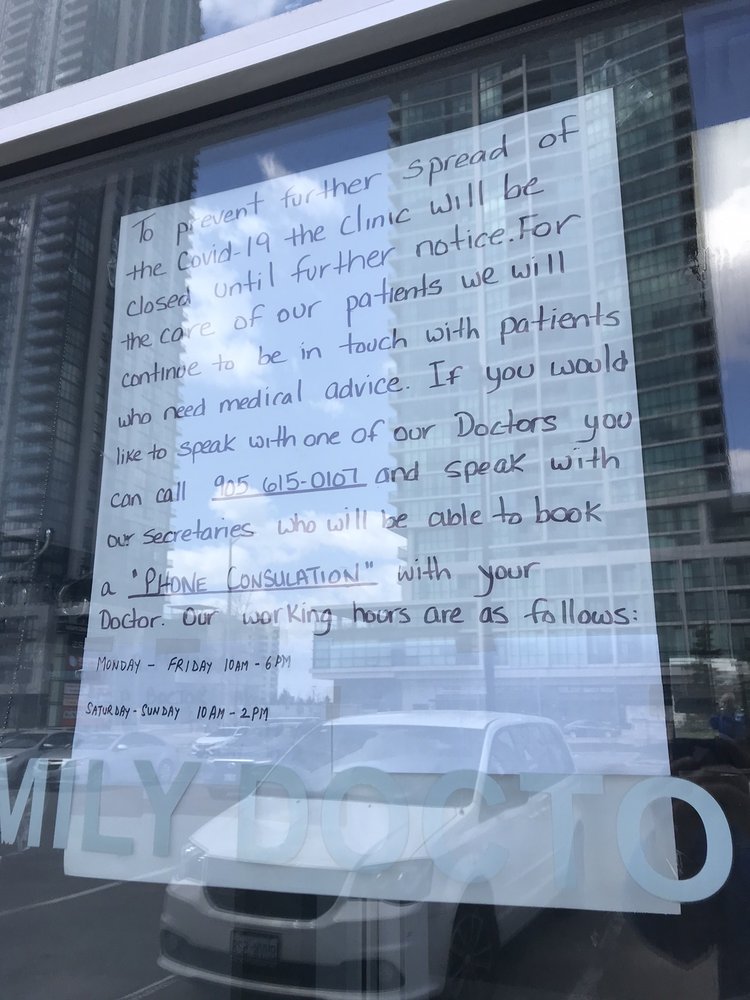 To prevent further spread of
the Covid-19 the Clinic will be
closed until further notice. For
the care of our patients we will
continue to be in touch with patients
who need medical advice. If you would
like to speak with one of our Doctors you
can call 905 615-0107 and speak with
our secretaries who will be able to book
a "PHONE CONSULATION" with your
Doctor. Our working hours are as follows:
MONDAY - FRIDAY 10AM - 6PM
SATURDAY - SUNDAY 10AM - 2PM
MILY DOCTO